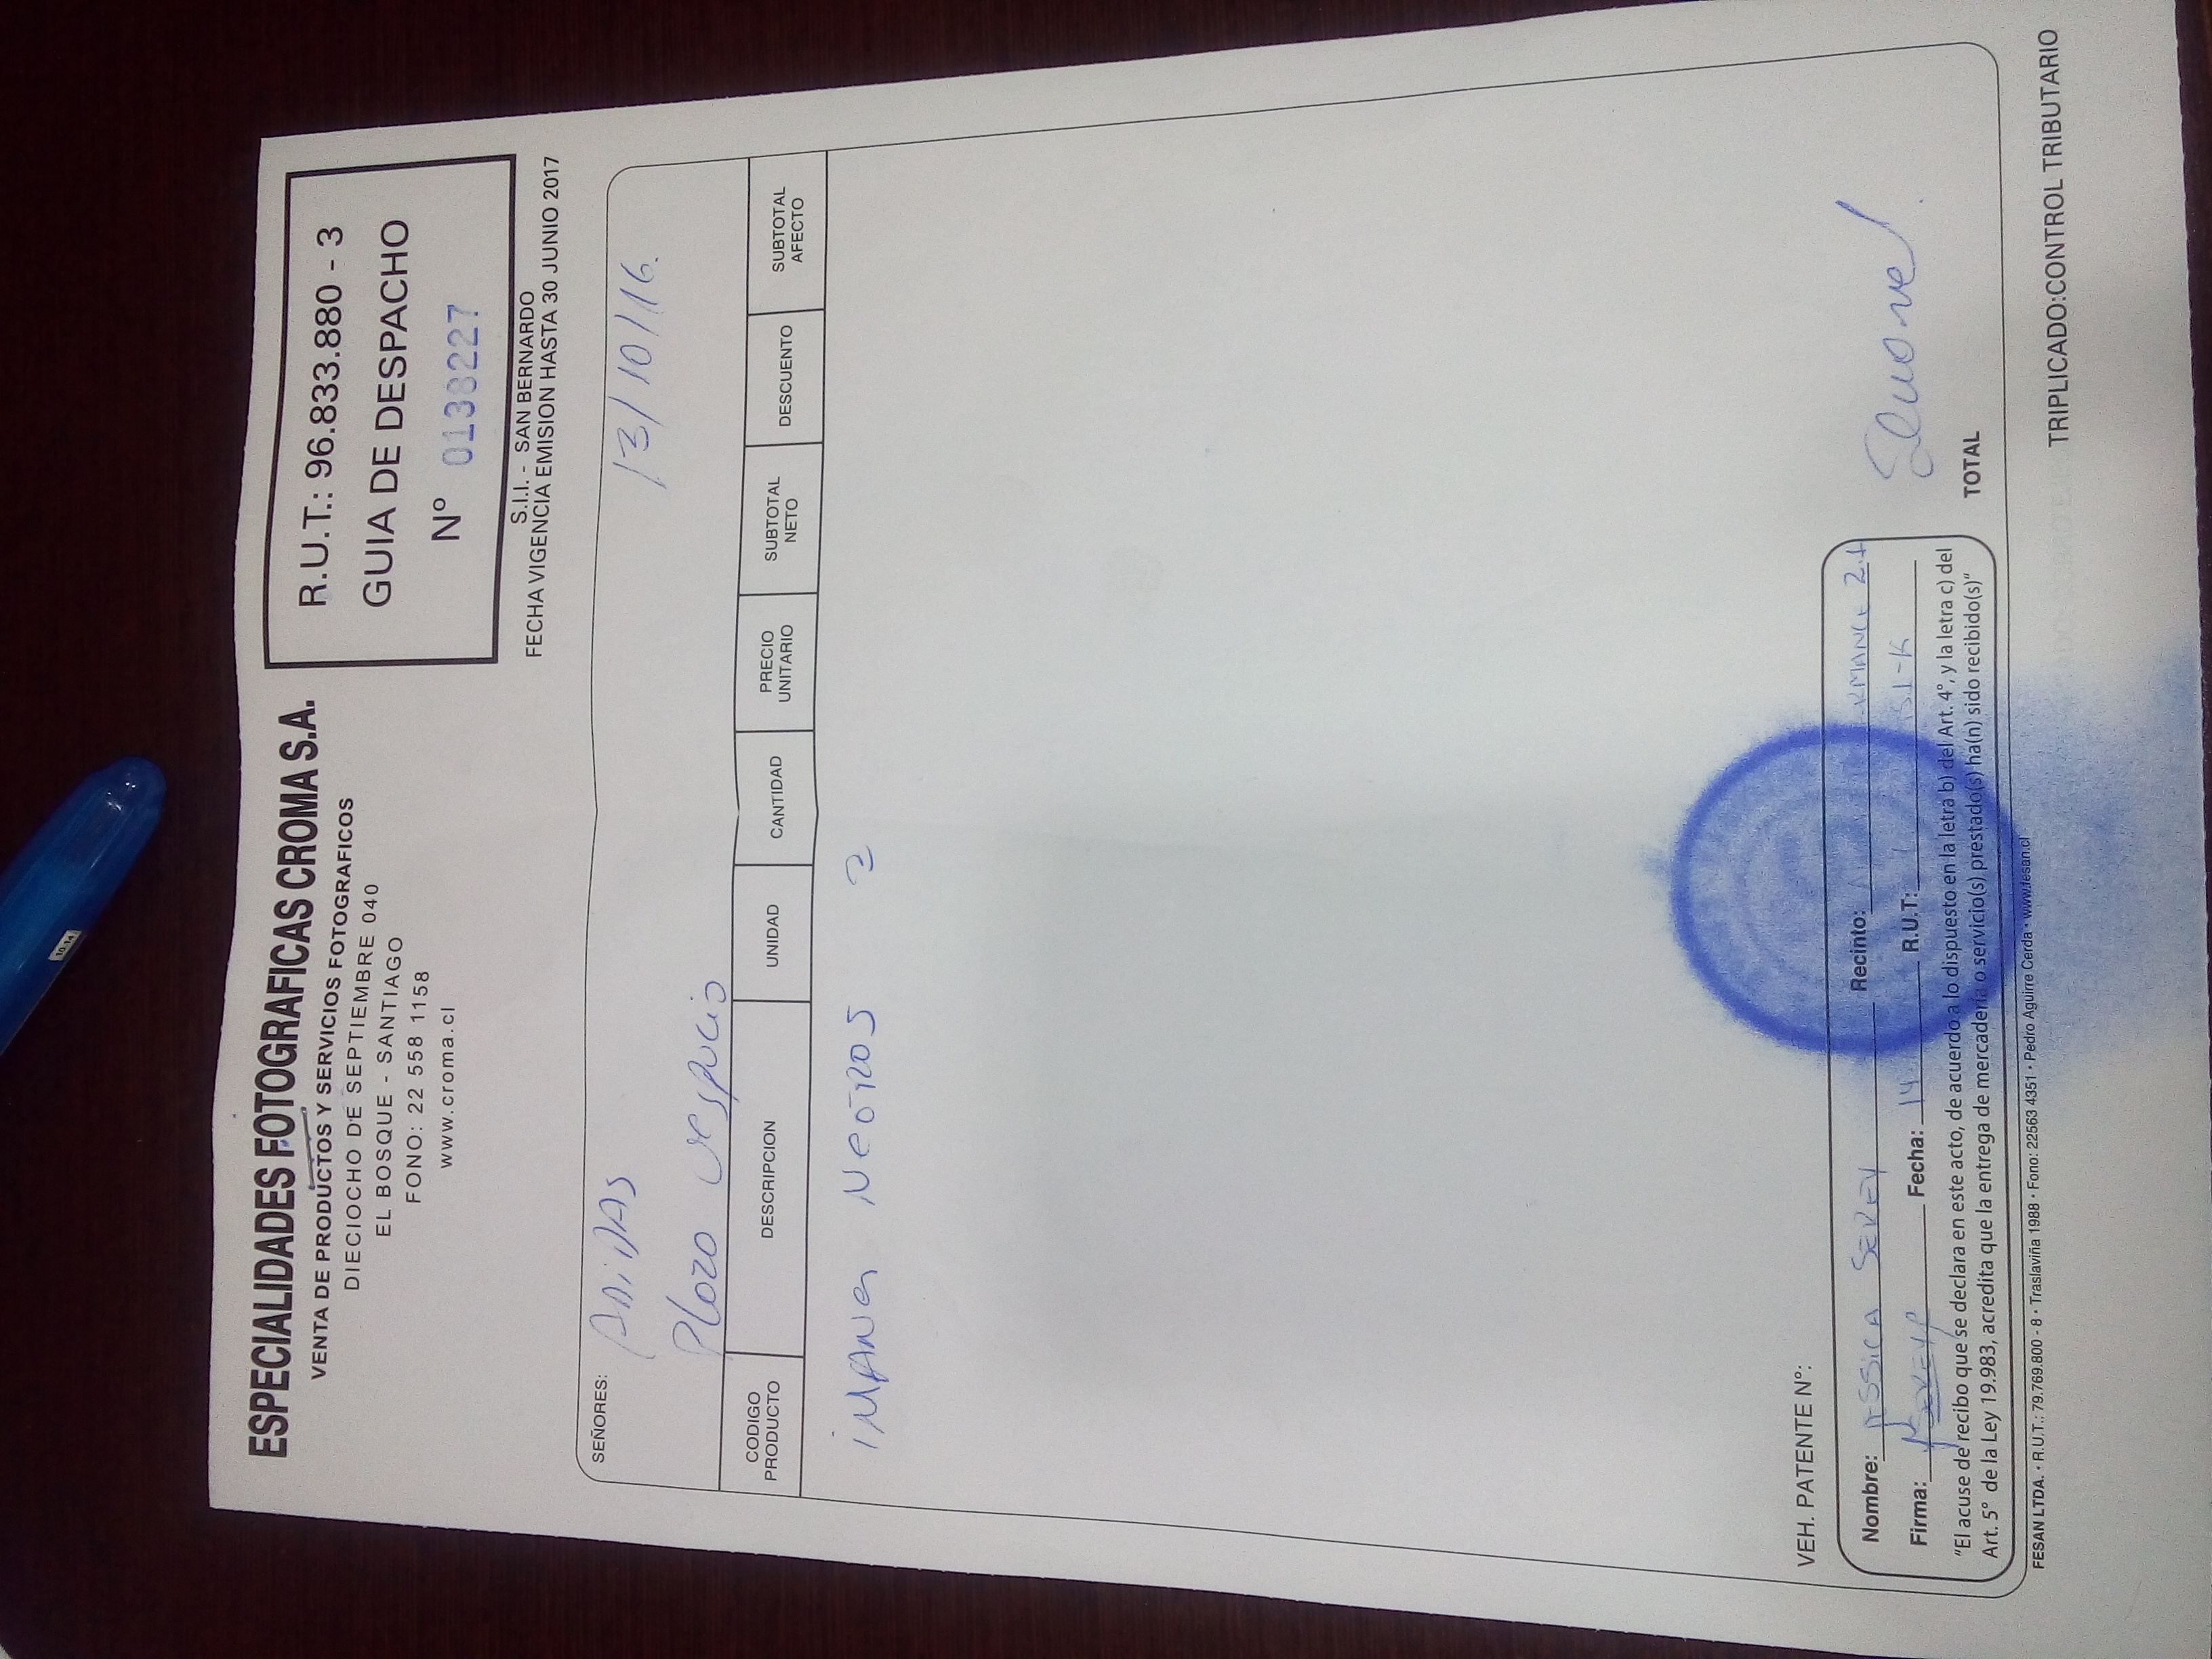 10 14
ESPECIALIDADES FOTOGRAFICAS CROMA S.A.
VENTA DE PRODUCTOS Y SERVICIOS FOTOGRAFICOS
DIECIOCHO DE SEPTIEMBRE 040
EL BOSQUE - SANTIAGO
FONO: 22 558 1158
www.croma.cl
R.U.T.: 96.833.880 - 3
GUIA DE DESPACHO
Nº 0138227
S.I.I. - SAN BERNARDO
FECHA VIGENCIA EMISION HASTA 30 JUNIO 2017
SEÑORES: ADIDAS 13/10/16.
Plaza Vespucio
CODIGO PRODUCTO DESCRIPCION UNIDAD CANTIDAD PRECIO UNITARIO SUBTOTAL NETO DESCUENTO SUBTOTAL AFECTO
IMANES 2
VEH. PATENTE Nº:
Nombre: JESSICA SEREY Recinto: RMANCE 2.1
Firma: Fecha: 14 R.U.T:
"El acuse de recibo que se declara en este acto, de acuerdo a lo dispuesto en la letra b) del Art. 4°, y la letra c) del
Art. 5° de la Ley 19.983, acredita que la entrega de mercadería o servicio(s) prestado(s) ha(n) sido recibido(s)"
TOTAL
FESAN LTDA. • R.U.T.: 79.769.800 - 8 • Traslaviña 1988 • Fono: 22563 4351 • Pedro Aguirre Cerda • www.fesan.cl
TRIPLICADO:CONTROL TRIBUTARIO